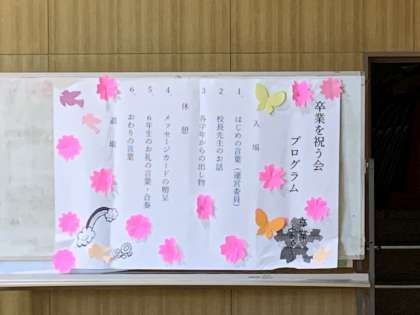 卒業を祝う会
プログラム
入場
1 はじめの言葉(運営委員)
2 校長先生のお話
3 各学年からの出し物
休憩
4 メッセージカードの贈呈
5 6年生のお礼の言葉・合奏
6 おわりの言葉
退場